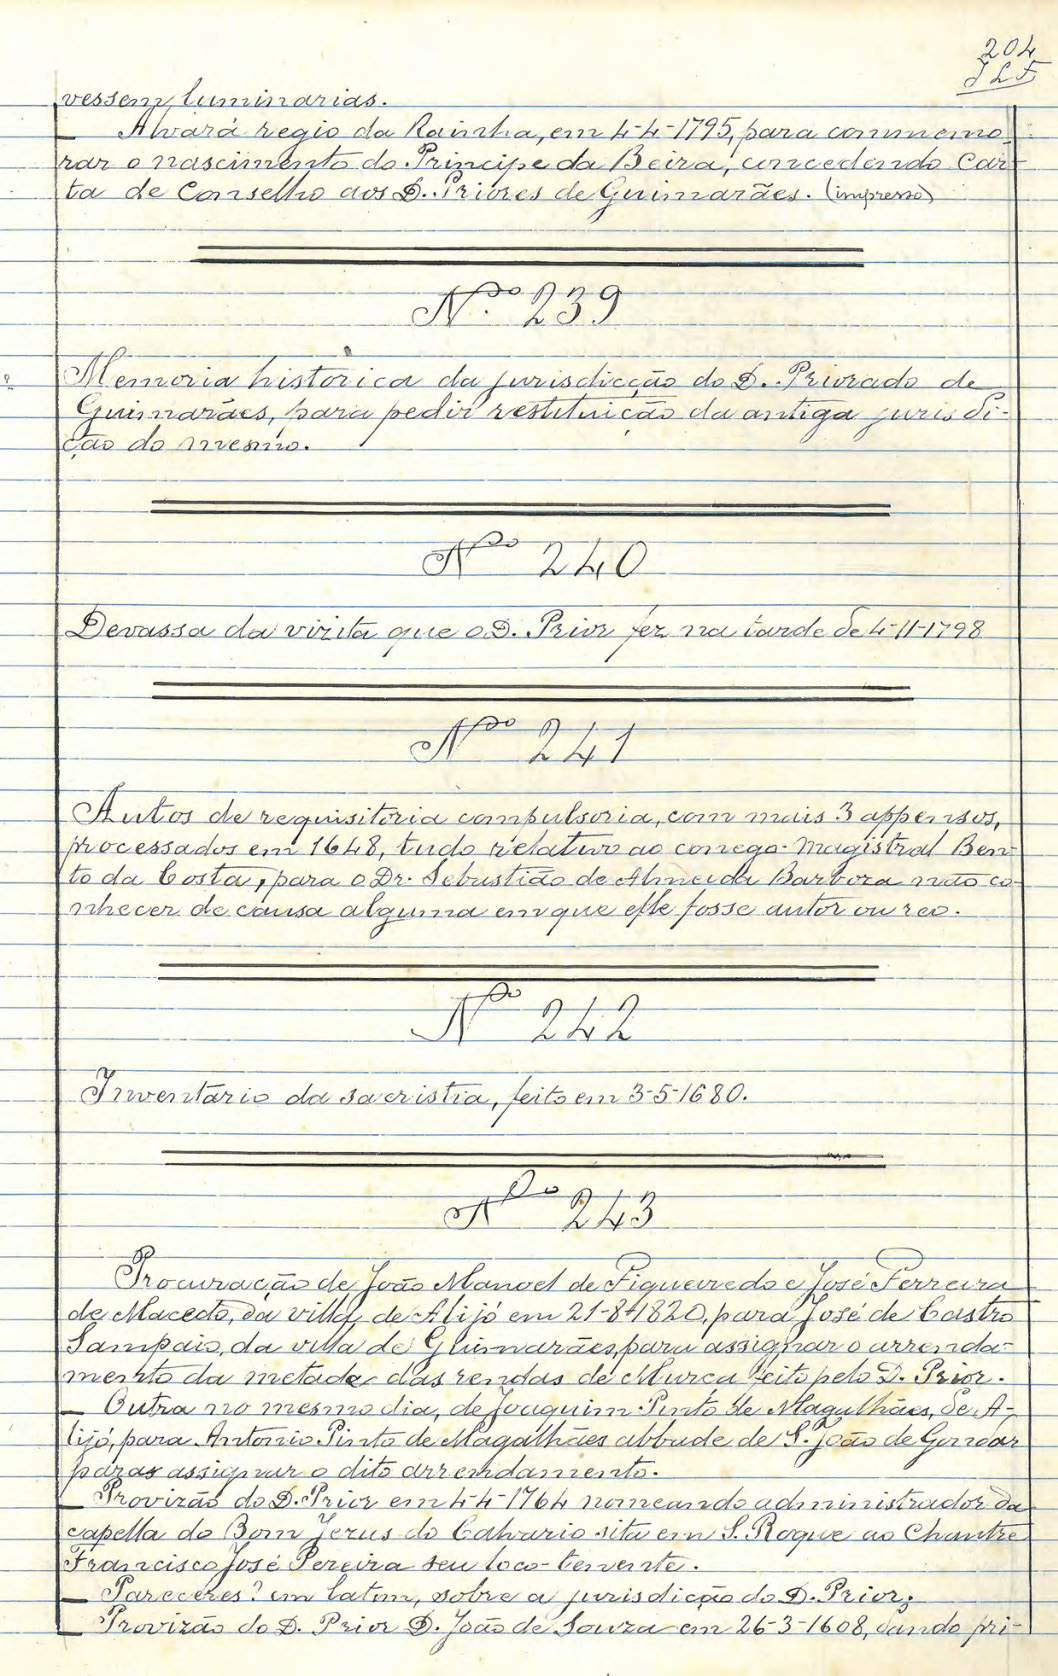 204
JLF
vessem luminarias.
— Alvará regio da Rainha, em 4-4-1795, para commemo
rar o nascimento do Principe da Beira, concedendo Car-
ta de Conselho aos D. Priores de Guimarães. (impresso)
Nº 239
Memoria historica da jurisdicção do D. Priorado de
Guimarães, para pedir restituição da antiga jurisdi-
ção do mesmo.
Nº 240
Devassa da vizita que o D. Prior fez na tarde de 4-11-1798
Nº 241
Autos de requisitoria compulsoria, com mais 3 appensos,
processados em 1648, tudo relativo ao conego Magistral Ben-
to da Costa, para o Dr. Sebastião de Almeida Barboza não co-
nhecer de causa alguma em que elle fosse autor ou reo.
Nº 242
Inventario da sacristia, feito em 3-5-1680.
Nº 243
Procuração de João Manoel de Figueiredo e José Ferreira
de Macedo, da villa de Alijó em 21-8-1820, para José de Castro
Sampaio, da villa de Guimarães, para assignar o arrenda-
mento da metade das rendas de Murca feito pelo D. Prior.
— Outra no mesmo dia, de Joaquim Pinto de Magalhães, de A-
lijó, para Antonio Pinto de Magalhães abbade de S. João de Gondar
para assignar o dito arrendamento.
— Provizão do D. Prior em 4-4-1764 nomeando administrador da
capella do Bom Jezus do Calvario sita em S. Roque ao Chantre
Francisco José Pereira seu loco-tenente.
— Pareceres? em latim, sobre a jurisdicção do D. Prior;
— Provizão do D. Prior D. João de Souza em 26-3-1608, dando pri-